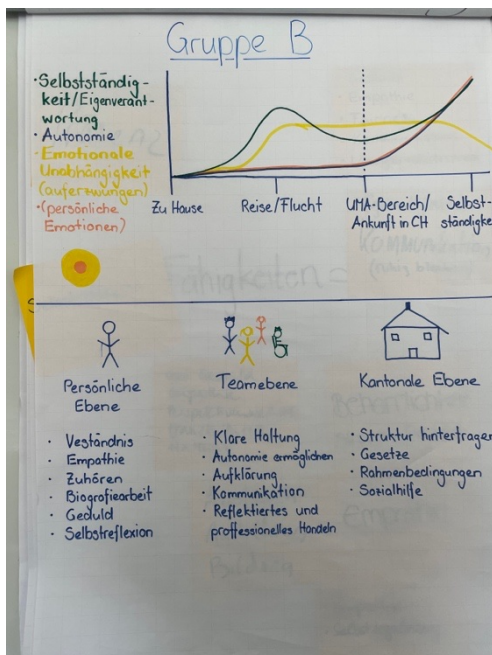 Gruppe B
· Selbstständig-
keit/Eigenverant-
wortung
· Autonomie
· Emotionale
Unabhängigkeit
(auferzwungen)
· (persönliche
Emotionen)
Zu Hause
Reise/Flucht
UMA-Bereich/
Ankunft in CH
Selbst-
ständigke
Fähigkeiten =
Persönliche
Ebene
· Veständnis
· Empathie
· Zuhören
· Biografiearbeit
· Geduld
· Selbstreflexion
Teamebene
· Klare Haltung
· Autonomie ermöglichen
· Aufklärung
· Kommunikation
· Reflektiertes und
proffessionelles Handeln
Kantonale Ebene
· Struktur hinterfragen
· Gesetze
· Rahmenbedingungen
· Sozialhilfe